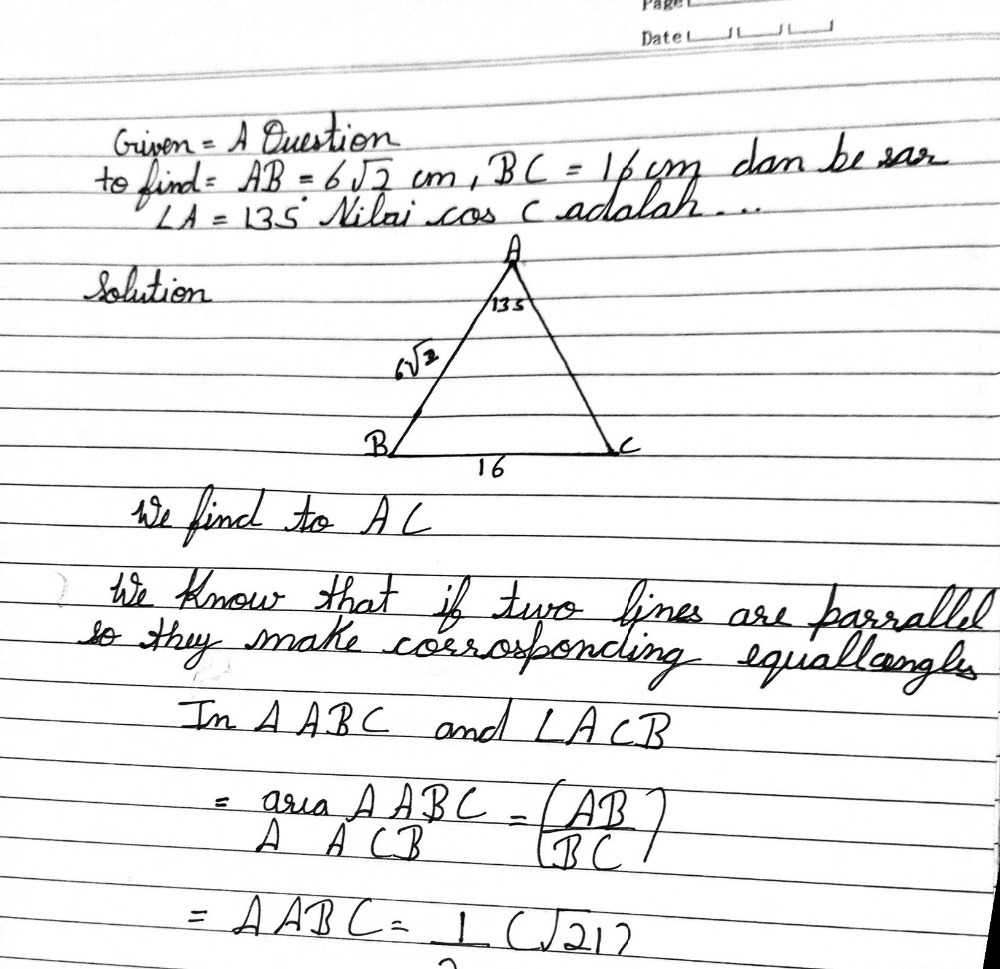 Page
Date
Given = A Question
to find = AB = 6√2 cm, BC = 16 cm dan be sar
∠A = 135° Nilai cos C adalah ...
Solution
A
135
6√2
B
C
16
We find to AC
We Know that if two lines are parrallel
so they make corrosponding equall angles
In Δ ABC and ∠ACB
= area Δ ABC = (AB
Δ ACB BC)
= Δ ABC = 1 (√21)
2